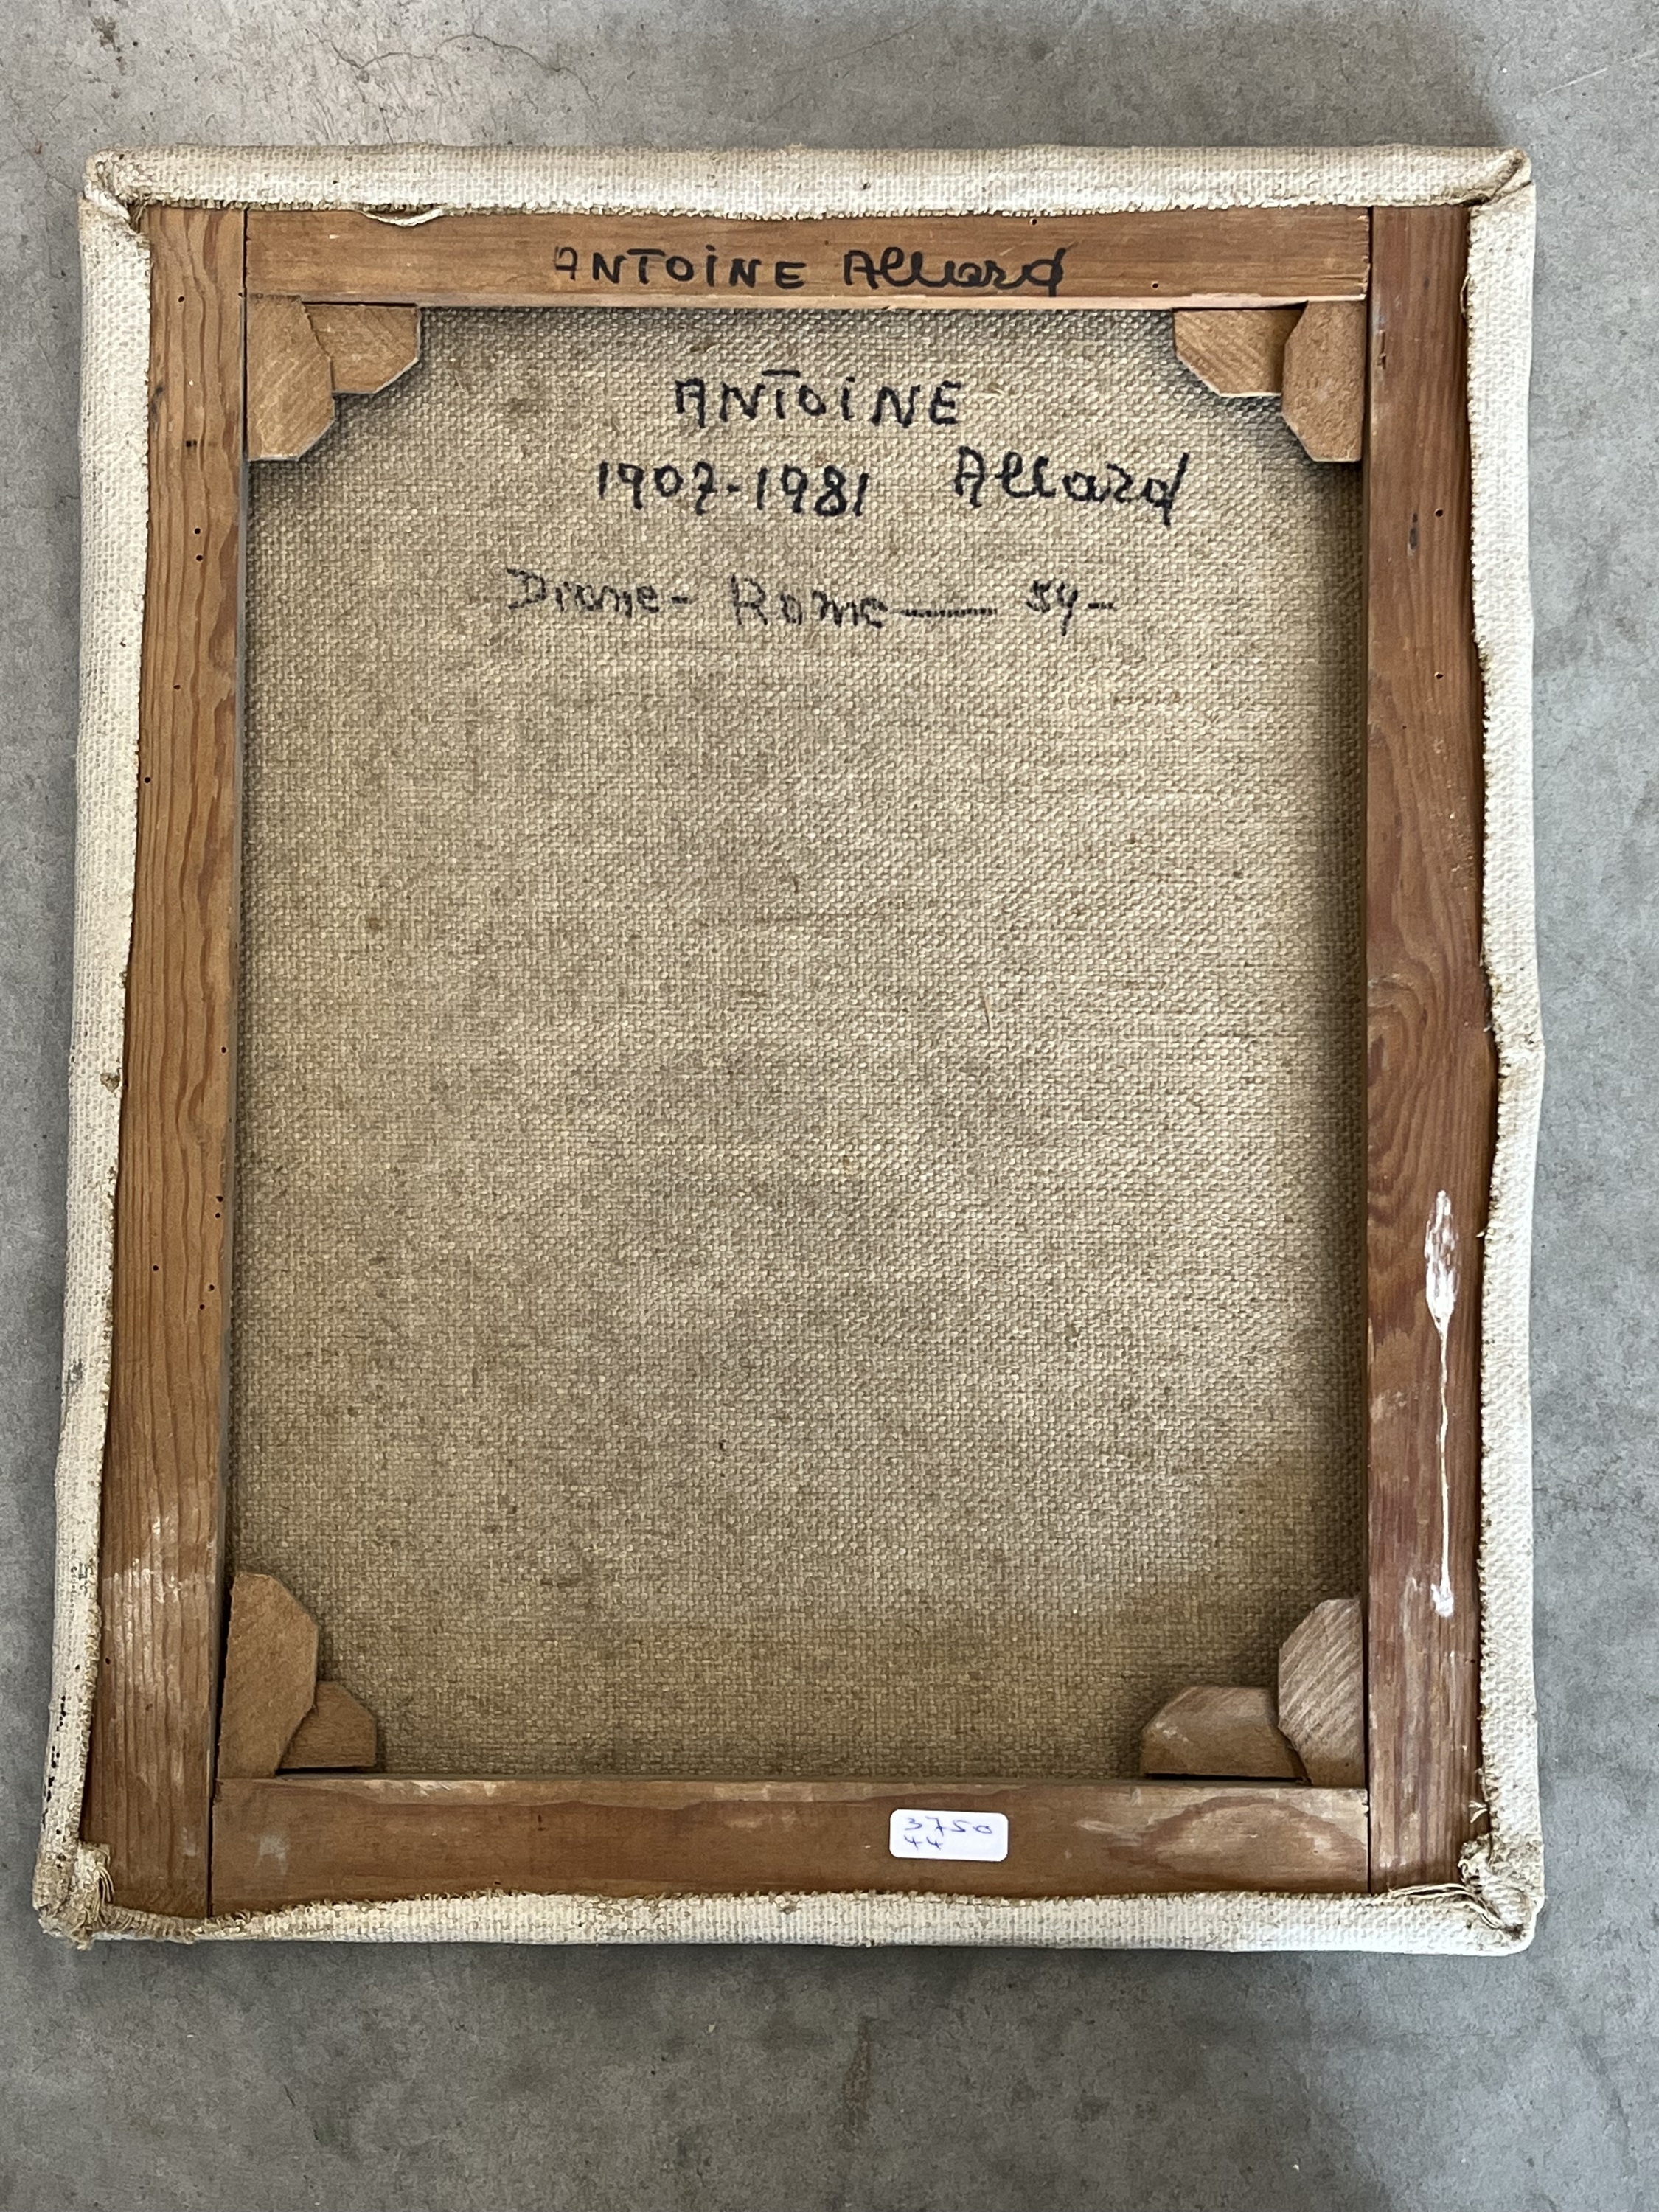 ANTOINE Allard
ANTOINE
1907-1981 Allard
Diane - Rome — 54 -
3750
44